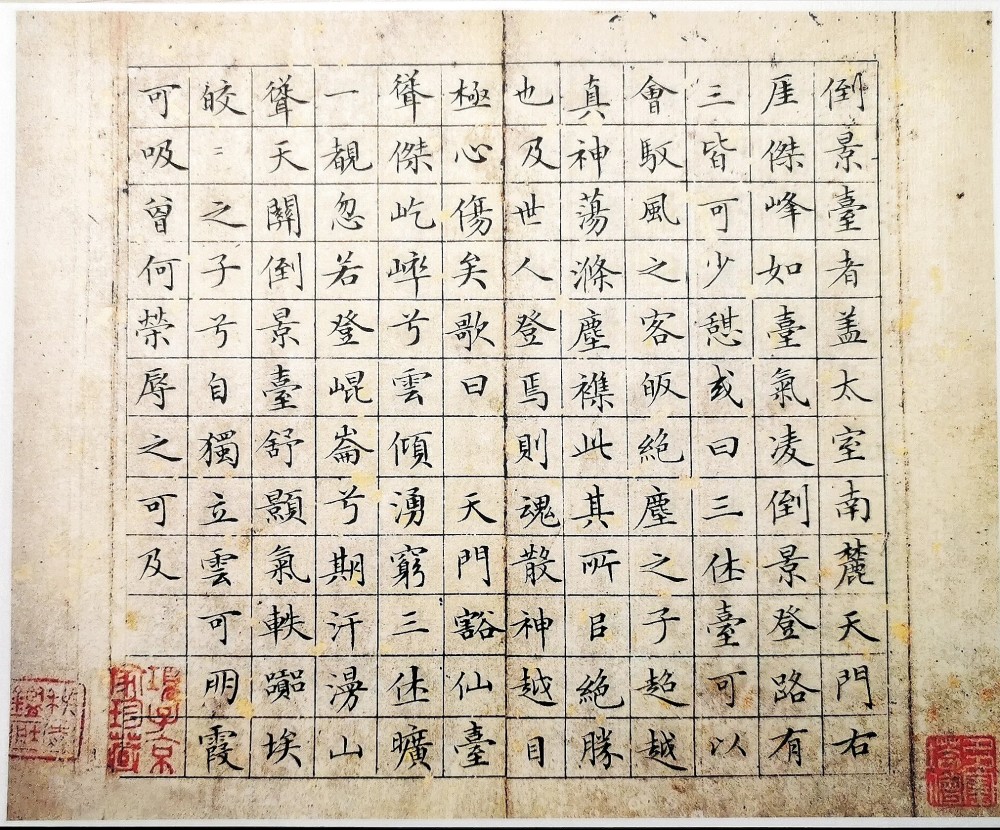 倒景臺者盖太室南麓天門右
厓傑峰如臺氣凌倒景登路有
三皆可少憇或曰三休臺可以
會馭風之客皈絶塵之子超越
真神蕩滌塵襟此其所㠯絶勝
也及世人登焉則魂散神越目
極心傷矣歌曰　天門豁仙臺
聳傑屹崒兮雲傾湧窮三休曠
一覩忽若登崐崙兮期汗漫山
聳天關倒景臺舒顥氣軼嚻埃
皎〻之子兮自獨立雲可朋霞
可吸曾何榮辱之可及
項子京家珍藏